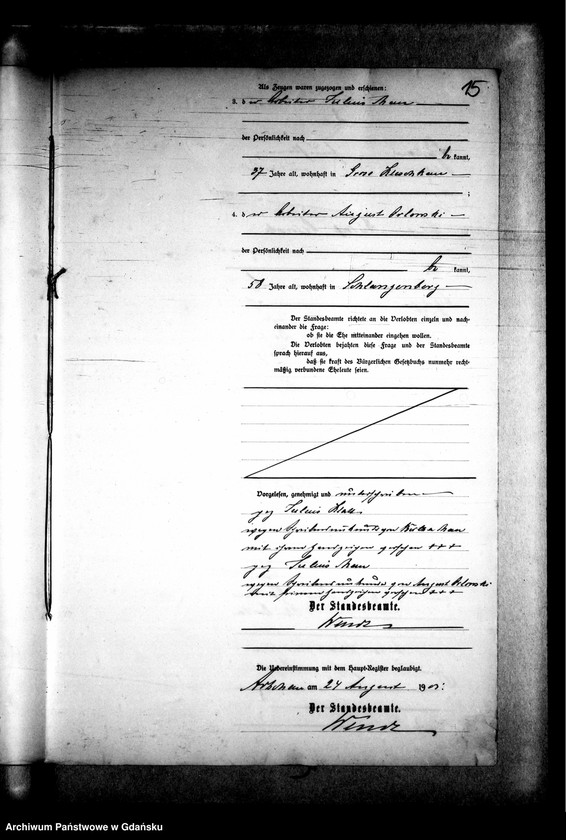 15
Als Zeugen waren zugezogen und erschienen:
3. der Arbeiter Julius Mau
der Persönlichkeit nach
be kannt,
37 Jahre alt, wohnhaft in Gross
;
4. der Arbeiter August Orlowski
der Persönlichkeit nach
be kannt,
58 Jahre alt, wohnhaft in Schlangenberg
Der Standesbeamte richtete an die Verlobten einzeln und nach-
einander die Frage:
ob sie die Ehe miteinander eingehen wollen.
Die Verlobten bejahten diese Frage und der Standesbeamte
sprach hierauf aus,
daß sie kraft des Bürgerlichen Gesetzbuchs nunmehr recht-
mäßig verbundene Eheleute seien.
Vorgelesen, genehmigt und unterschrieben
gez Julius
wegen Schreibensunkunde von Mau
mit ihrem Handzeichen versehen + + +
gez Julius Mau
wegen Schreibensunkunde von August Orlowski
mit seinem Handzeichen versehen + + +
Der Standesbeamte.
Wendt
Die Uebereinstimmung mit dem Haupt-Register beglaubigt.
am 24 August 190
Der Standesbeamte.
Wendt
Archiwum Państwowe w Gdańsku